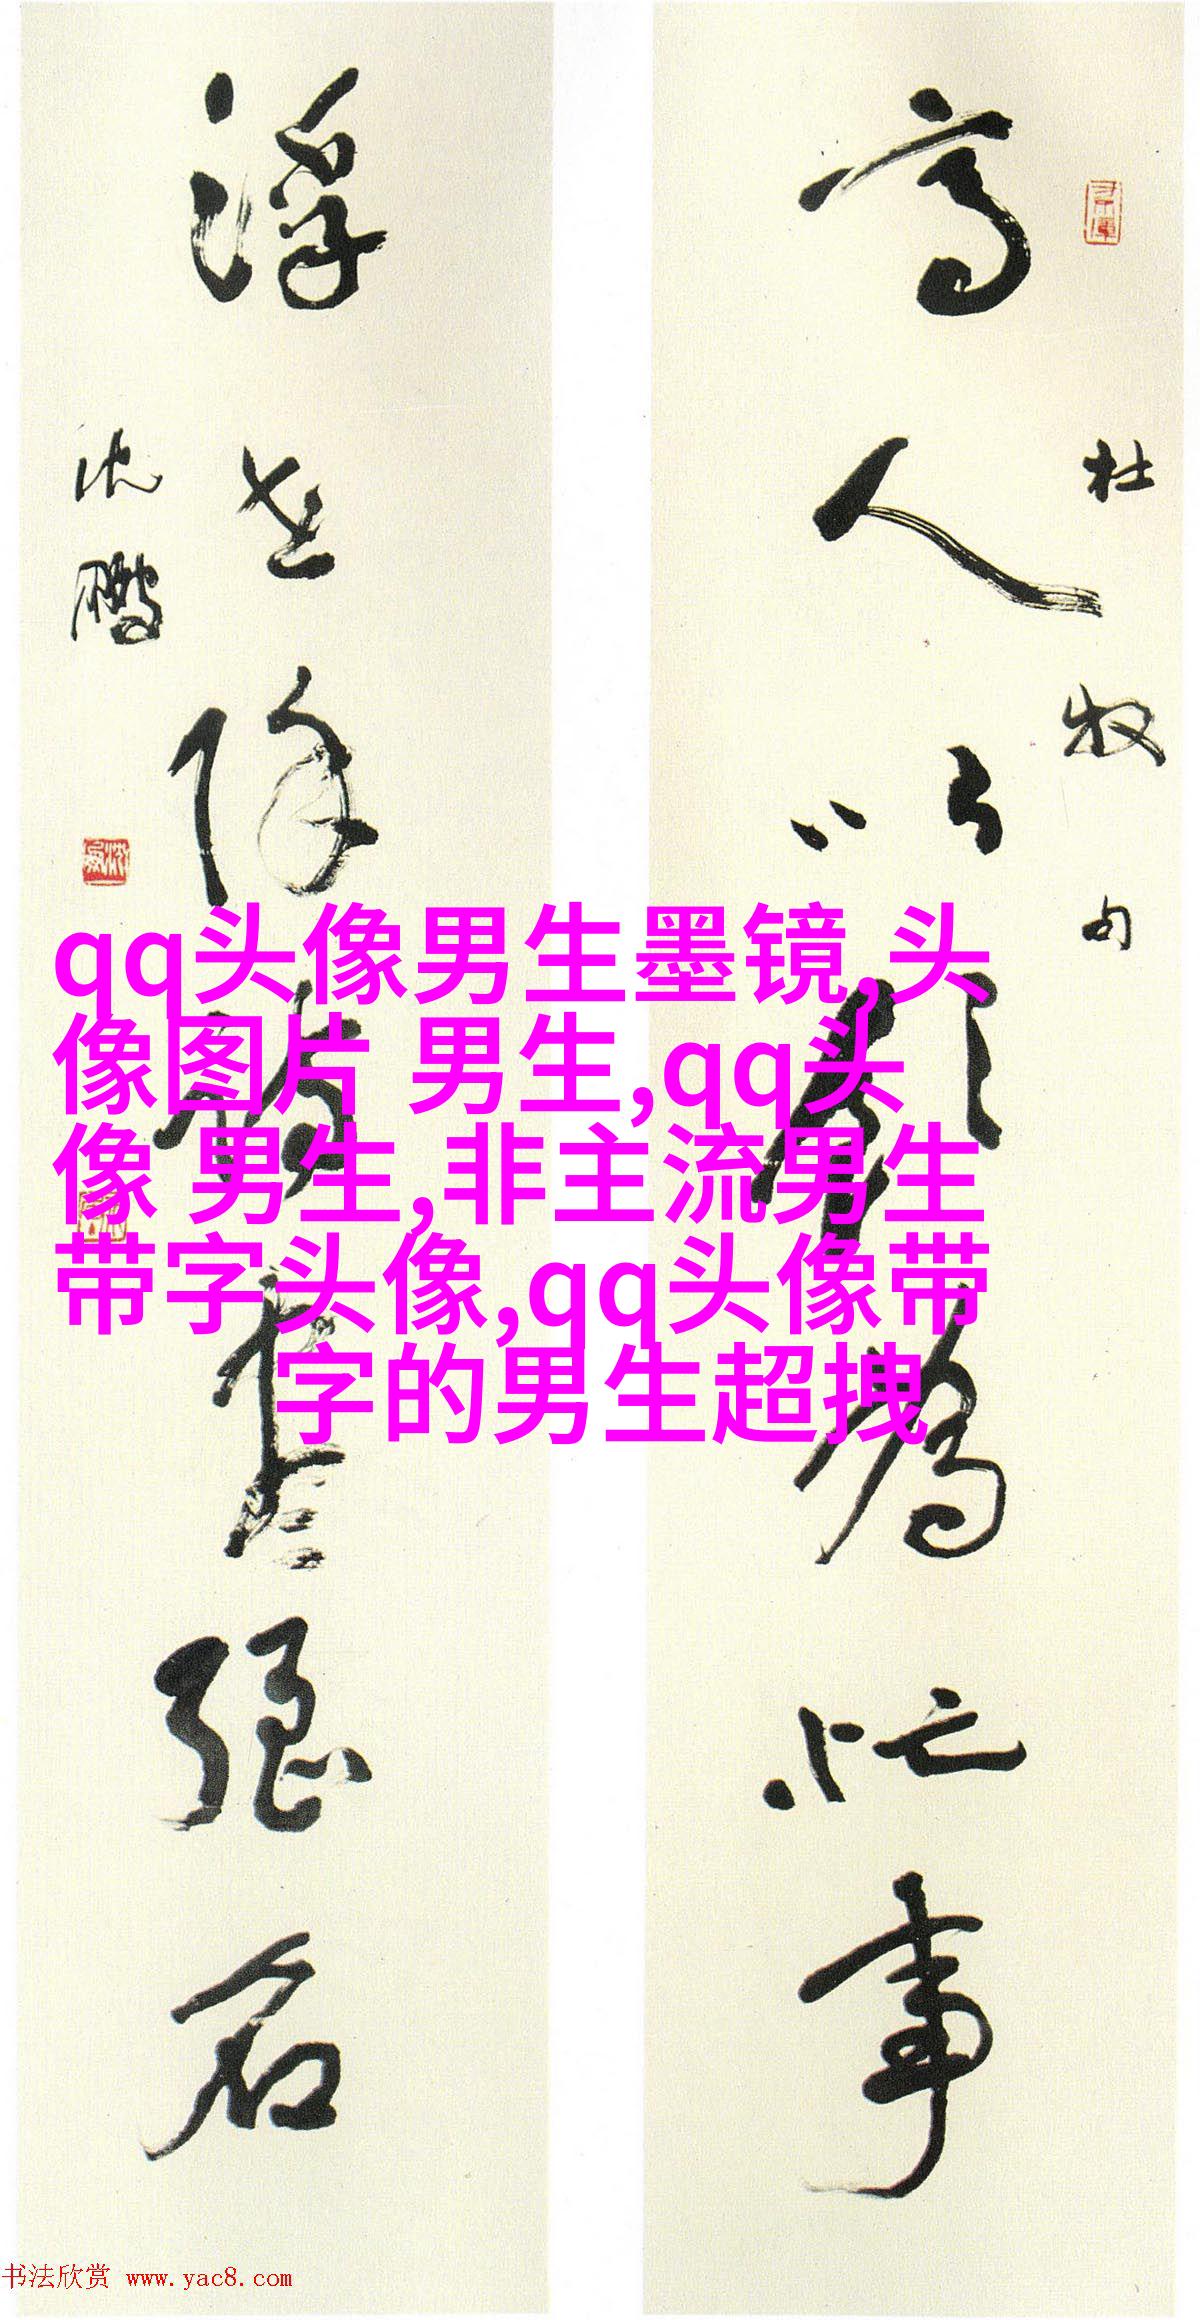 高人以飲為忙事
杜牧句
浮世除詩盡强名
沈鹏
qq头像男生墨镜,头
像图片 男生,qq头
像 男生,非主流男生
带字头像,qq头像带
字的男生超拽
书法欣赏 www.yac8.com